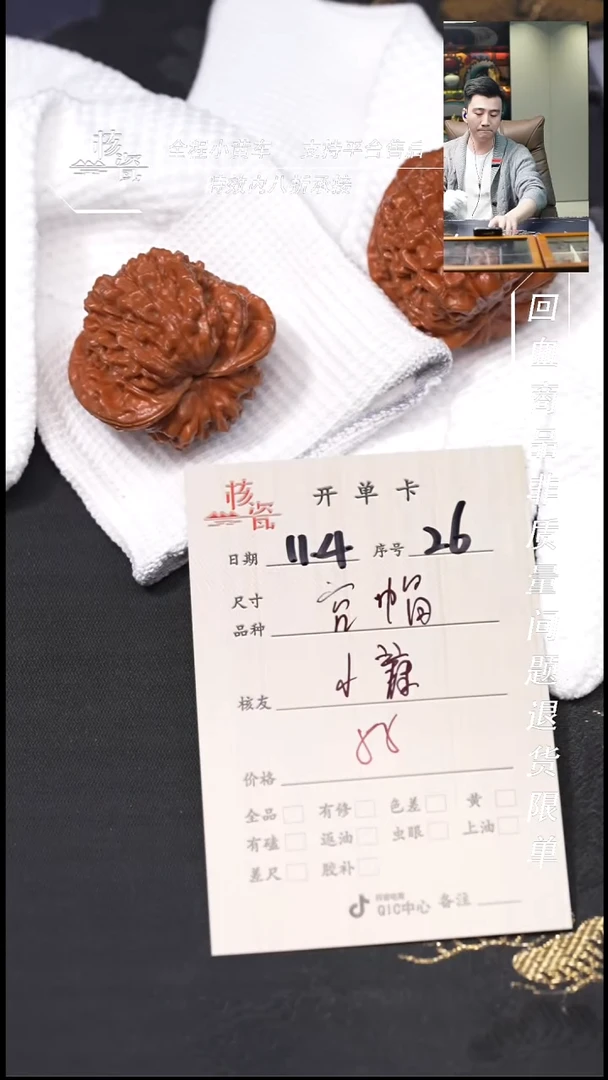 核瓷
全程小黄车 支持平台售后
回血商品非质量问题退货限单
核瓷
开单卡
日期 11.4 序号 26
尺寸
品种 官帽
核友 小薛
价格
全品 有修 色差 黄
有磕 返油 虫眼 上油
差尺 胶补
抖音电商
QIC中心 备注